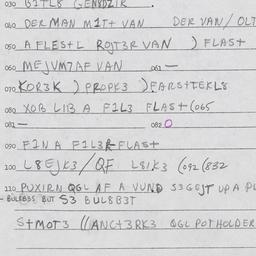 030 B1TL8 GEN8DZIR
040 DER MAN M1T+ VAN DER VAN / OLT
050 A FLES+L ROJT3R VAN ) FLAS+
060 MEJVM7AF VAN 061 —
070 KOR3K ) PROPK3 ) FARS+TEKL8
080 XOB LIB A F1L3 FLAS+ (065
081 — 082 O
090 F1NA F1L3R FLAS+
100 L8EJK3 / QF L81K3 (092 (832
110 PUXIRN QGL AF A VUND S3GOJT UP A PL
- BULEBBS BUT S3 BUL8B3T
S+MOT3 ((ANC+3RK3 QGL POTHOLDER